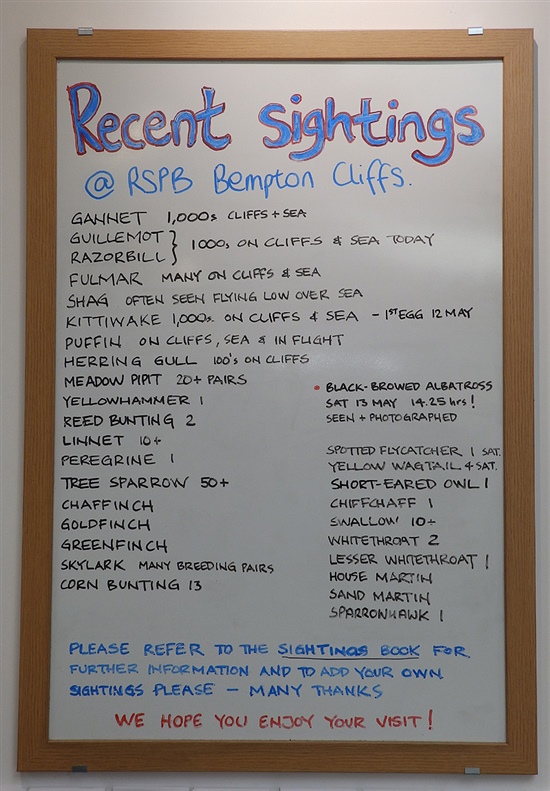 Recent Sightings
@ RSPB Bempton Cliffs.
GANNET 1,000s CLIFFS + SEA
GUILLEMOT
RAZORBILL } 1000s ON CLIFFS & SEA TODAY
FULMAR MANY ON CLIFFS & SEA
SHAG OFTEN SEEN FLYING LOW OVER SEA
KITTIWAKE 1,000s. ON CLIFFS & SEA - 1ST EGG 12 MAY
PUFFIN ON CLIFFS, SEA & IN FLIGHT
HERRING GULL 100's ON CLIFFS
MEADOW PIPIT 20+ PAIRS
YELLOWHAMMER 1
REED BUNTING 2
LINNET 10+
PEREGRINE 1
TREE SPARROW 50+
CHAFFINCH
GOLDFINCH
GREENFINCH
SKYLARK MANY BREEDING PAIRS
CORN BUNTING 13
• BLACK-BROWED ALBATROSS
SAT 13 MAY 14.25 hrs!
SEEN + PHOTOGRAPHED
SPOTTED FLYCATCHER 1 SAT.
YELLOW WAGTAIL 4 SAT.
SHORT-EARED OWL 1
CHIFFCHAFF 1
SWALLOW 10+
WHITETHROAT 2
LESSER WHITETHROAT 1
HOUSE MARTIN
SAND MARTIN
SPARROWHAWK 1
PLEASE REFER TO THE SIGHTINGS BOOK FOR
FURTHER INFORMATION AND TO ADD YOUR OWN
SIGHTINGS PLEASE - MANY THANKS
WE HOPE YOU ENJOY YOUR VISIT!